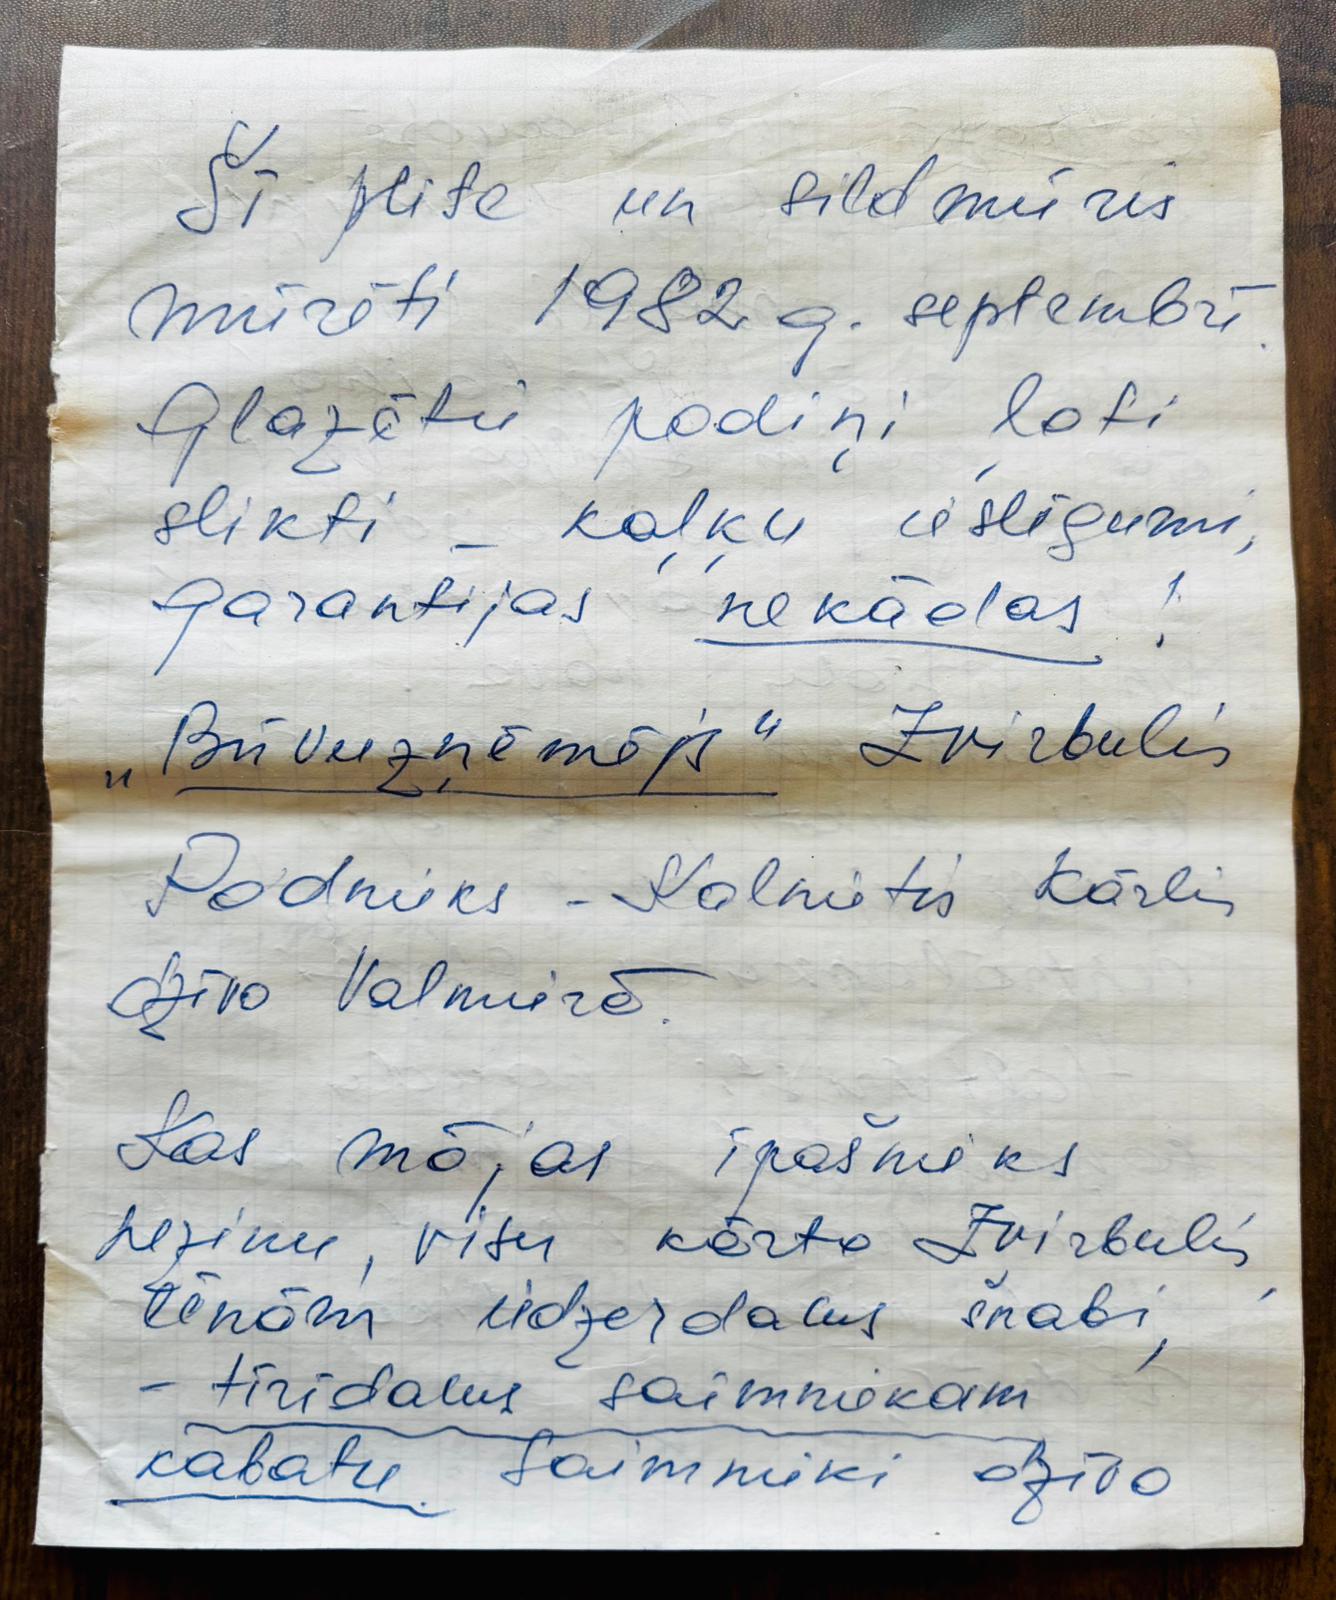 Šī plite un sildmūris
mūrēti 1982 g. septembrī.
Glazētie podiņi ļoti
slikti - kaļķu ieslēgumi,
garantijas nekādas!
„Būvuzņēmējs“ Zvirbulis
Podnieks - Kalnietis Kārlis
dzīvo Valmierā.
Kas mājas īpašnieks
nezinu, visu kārto Zvirbulis,
iedzerdams šnabi,
- tīrīdams saimniekam
kabatu. Saimnieki dzīvo